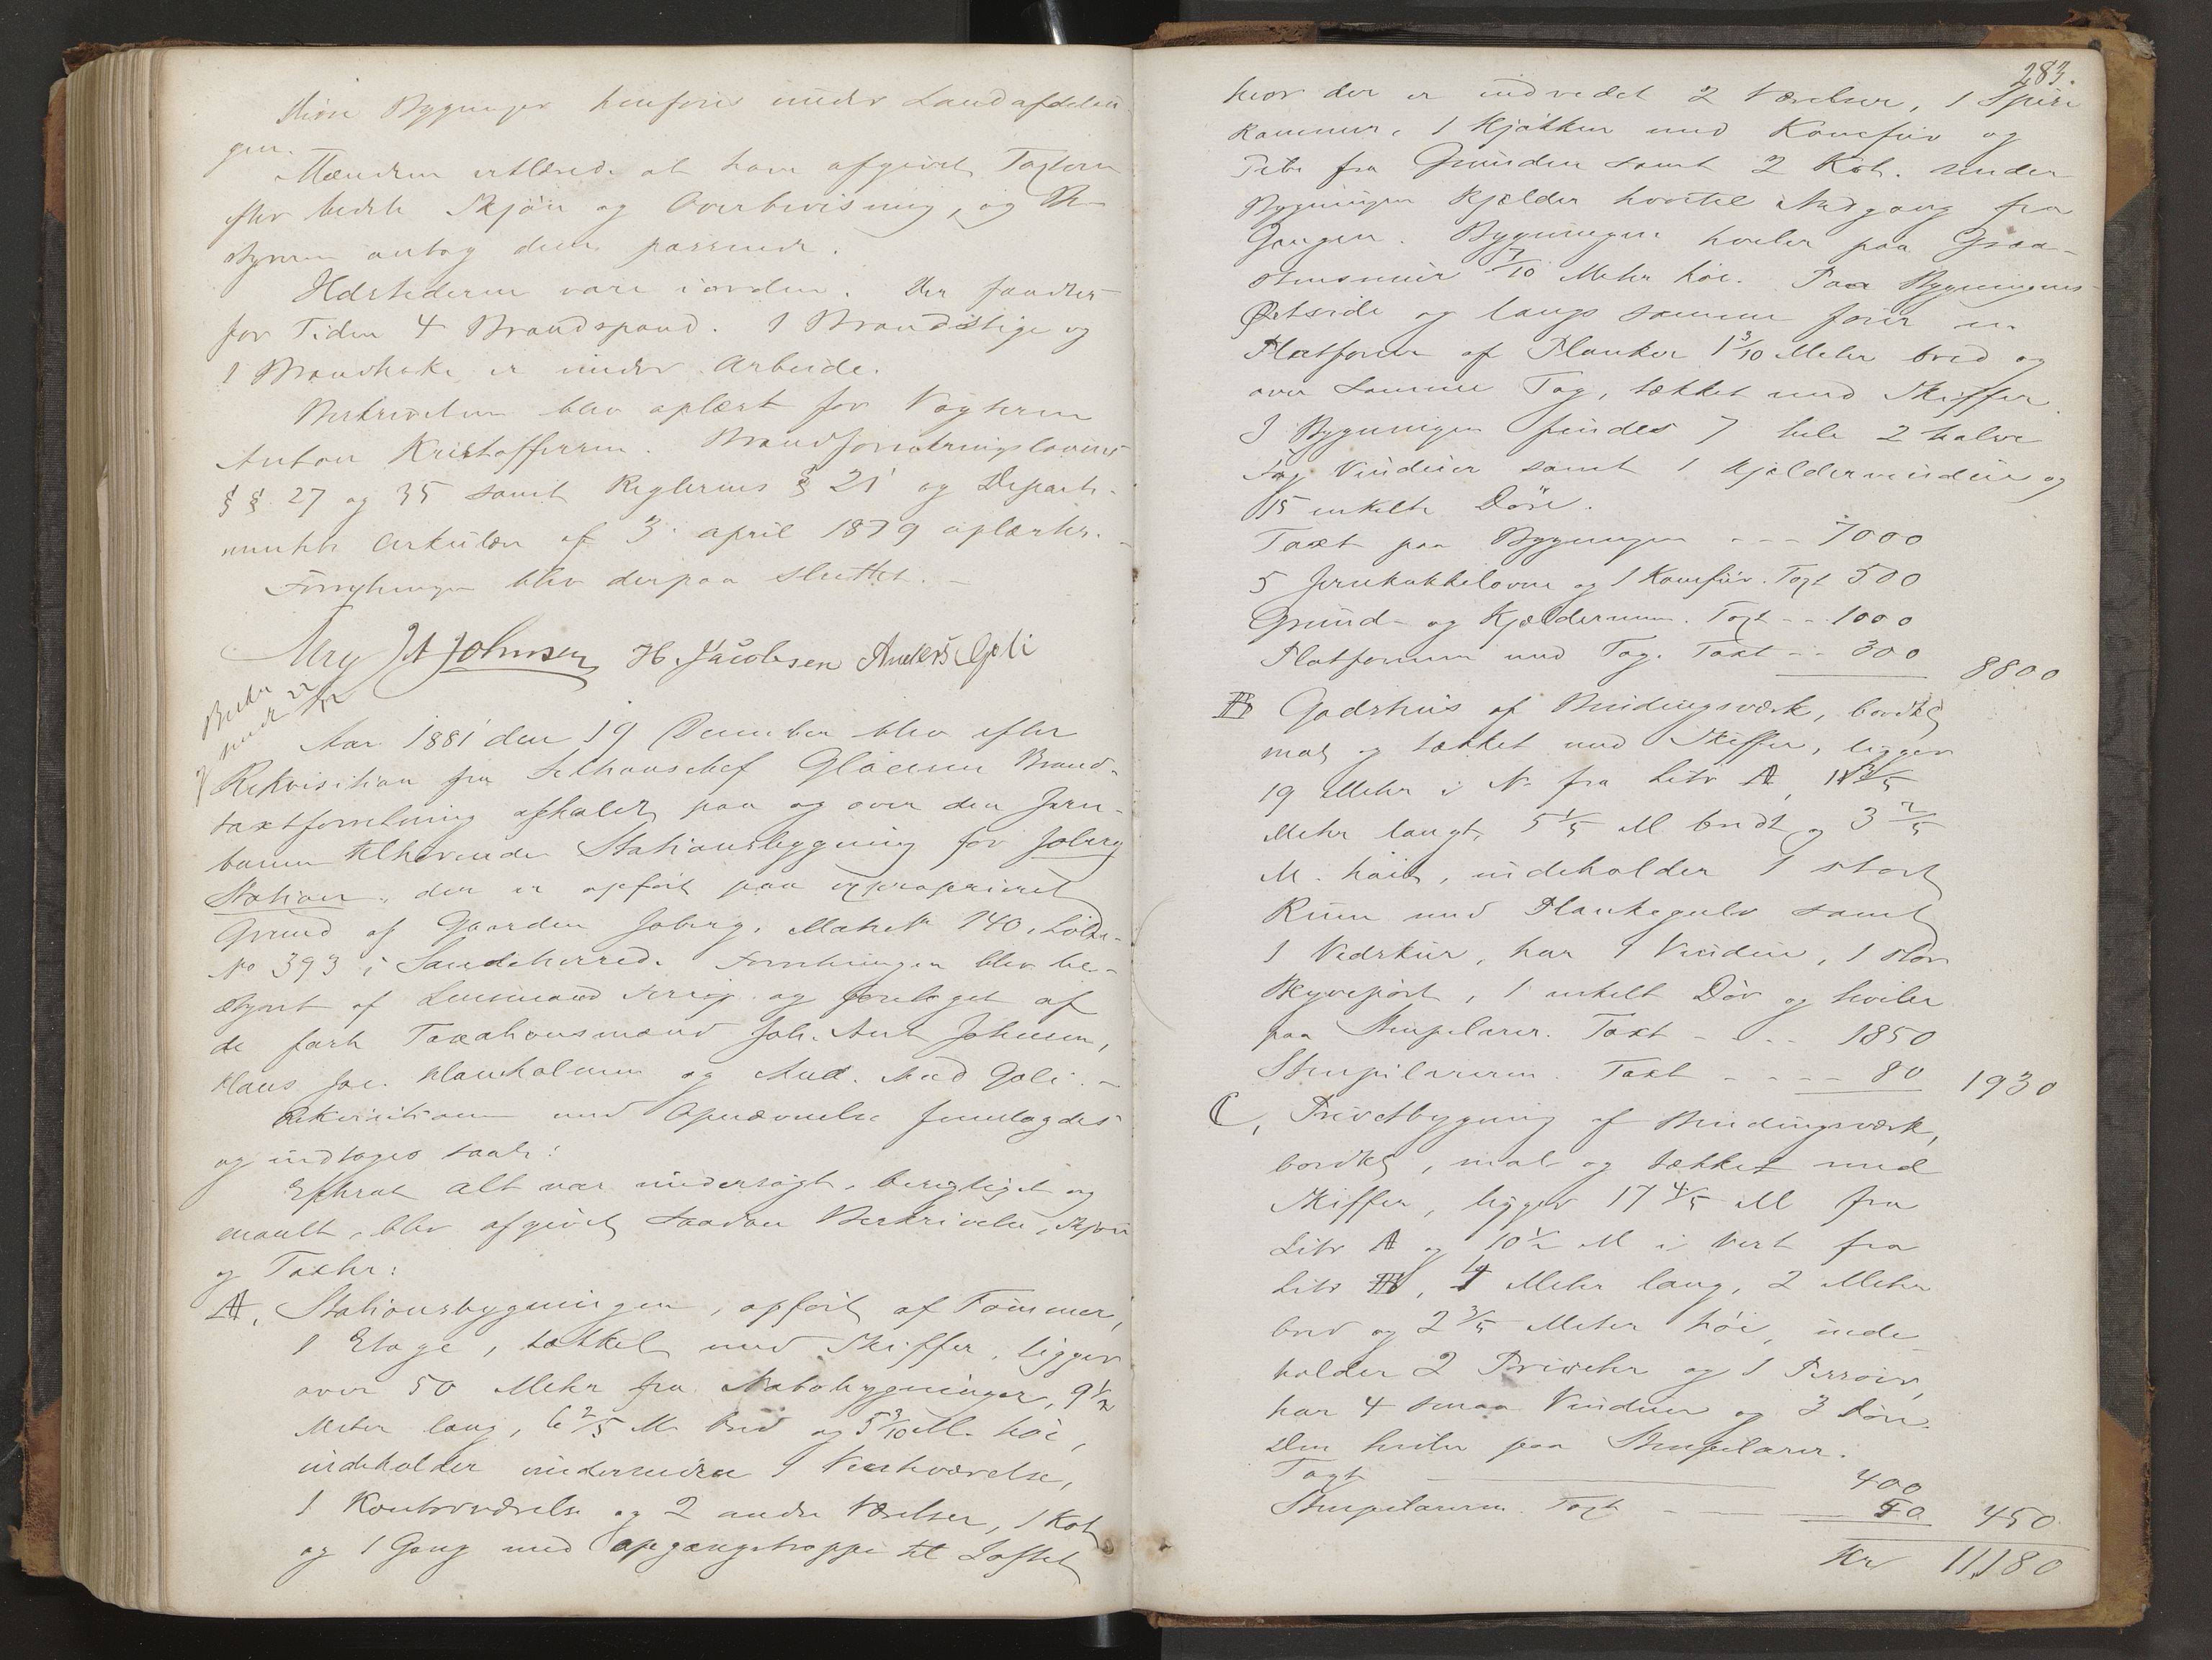 disse Bygninger henføres under Landafdelin-
gen.
Mændene erklærede at have afgivet Taxten
efter bedste Skjøn og Overbevisning, og Be-
styreren antog den passende.
Ildstederne vare i orden. Der fandtes
for Tiden 4 Brandspand. 1 Brandstige og
1 Brandhake er under Arbeide.
Beskrivelsen blev oplæst for Vogteren
Anton Kristoffersen. Brandforsikringslovens
§§ 27 og 35 samt Reglernes § 21 og Departe-
mentets Cirkulær af 3 april 1879 oplæstes. –
Forretningen blev derpaa sluttet. –
JA Johnsen H. Jacobsen Anders Goli
Aar 1881 den 19 December blev efter
Rekvisition fra Sektionschef Gløersen Brand-
taxtforretning afholdt paa og over den Jern-
banen tilhørende Stationsbygning for Joberg
Station, der er opført paa exproprieret
Grund af Gaarden Joberg, Matr № 140, Løbe-
No 393 i Sandeherred. Forretningen blev be-
styret af Lensmand og foretaget af
de faste Taxationsmænd Joh. Ant Johnsen,
Klaus Jac. Klavholmen og And. Mad Goli. –
Rekvisitionen med Opnævnelse fremlagdes
og indtages saal:
Efterat alt var undersøgt, besigtiget og
maalt, blev afgivet saadan Beskrivelse, Skjøn
og Taxter:
A, Stationsbygningen, opført af Tømmer,
1 Etage, tækket med Skiffer, ligger
over 50 Meter fra Nabobygninger, 9½
Meter lang, 6 2/5 M. bred og 5 3/10 M. høi,
indeholder indvendig 1 Venteværelse,
1 Kontorværelse og 2 andre Værelser, 1 Kot
og 1 Gang med Opgangstrappe til Loftet
283.
hvor der er indredet 2 Værelser, 1 Spise
kammer, 1 Kjøkken med Komfur og
Pibe fra Grunden samt 2 Kot. Under
Bygningen Kjælder hvortil Nedgang fra
Gangen. Bygningen hviler paa Graa-
stensmur 7/10 Meter høi. Paa Bygningens
Østside og langs samme fører en
Platform af Planker 1 3/10 Meter bred og
over samme Tag, tækket med Skiffer.
I Bygningen findes 7 hele 2 halve
Fag Vinduer samt 1 Kjældervindue og
15 enkelte Døre.
Taxt paa Bygningen - - - 7000
5 Jernkakkelovne og 1 Komfur. Taxt 500
Grund- og Kjældermur. Taxt - - 1000
Platformen med Tag. Taxt - - 300 8800
B Godshus af Bindingsværk, bordklædt
malt og tækket med Skiffer, ligger
19 Meter i N. fra Litr A,
Meter langt, 5 1/5 M bredt og 3 2/5
M. høit, indeholder 1 stort
Rum med Plankegulv samt
1 Vedskur, har 1 Vindue, 1 stor
Skyveport, 1 enkelt Dør og hviler
paa Stenpilarer. Taxt - - - 1850
Stenpilarerne. Taxt - - - - 80 1930
C, Privetbygning af Bindingsværk,
bordkl, malt og tækket med
Skiffer, ligger 17 4/5 M fra
Litr A og 10½ M i Vest fra
Litr B, 4 Meter lang, 2 Meter
bred og 2 3/5 Meter høi, inde-
holder 2 Priveter og 1 Pissoir,
har 4 smaa Vinduer og 3 Døre.
Den hviler paa Stenpilarer.
Taxt 400
Stenpilarerne. Taxt - 50 450
Kr 11,180